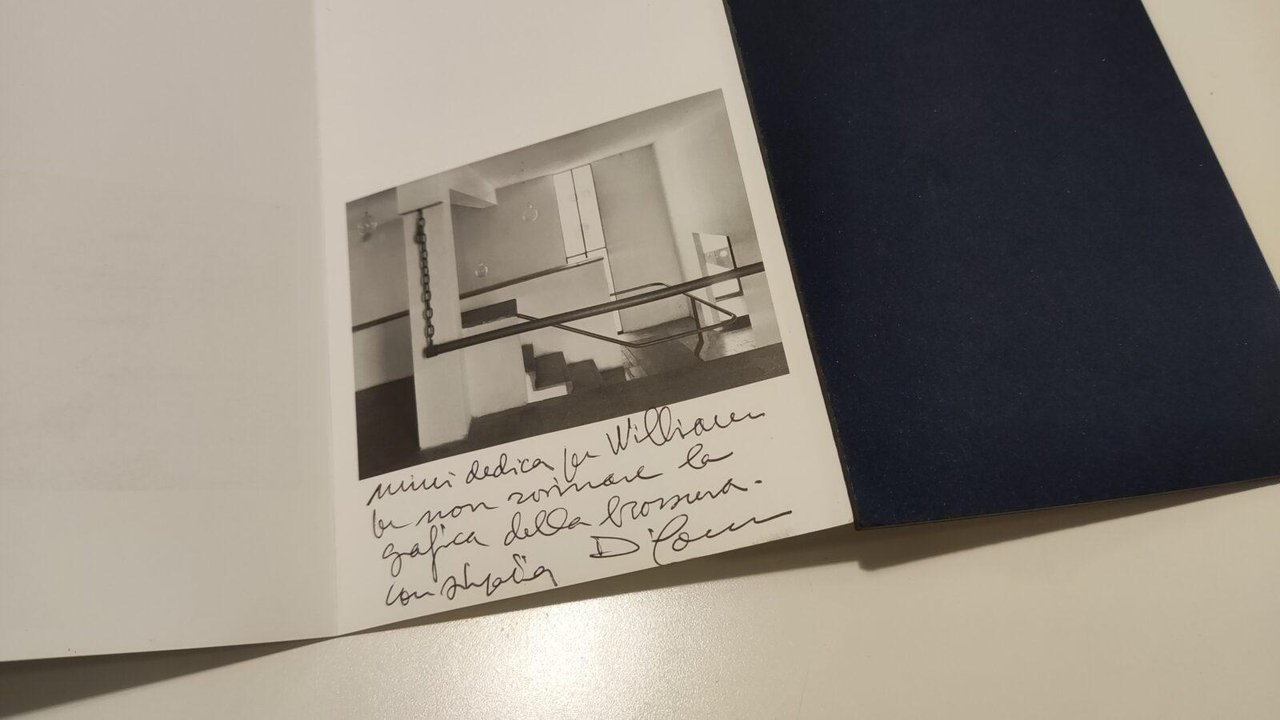 mini dedica per William
per non rovinare la
grafica della brossura.
con stima